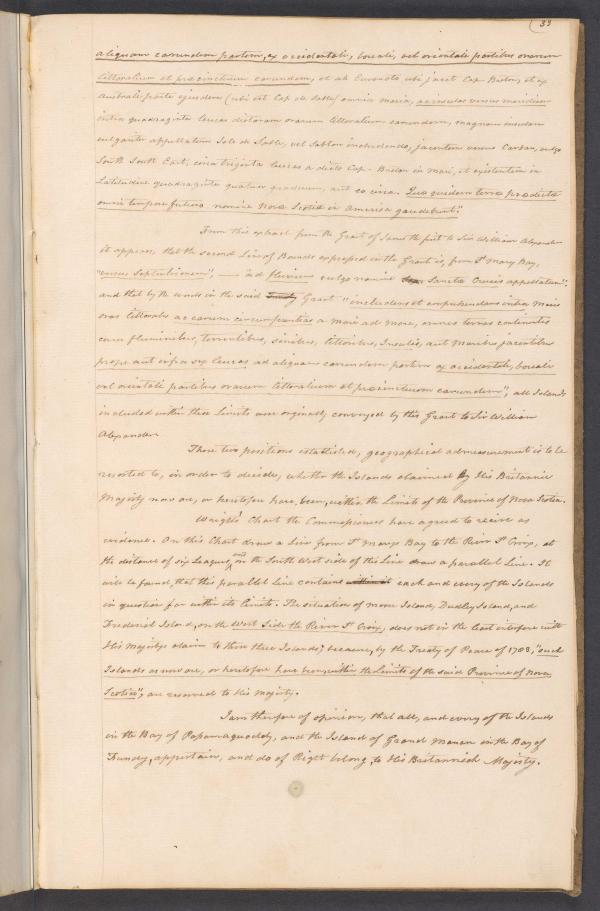 33
aliquam earundem partem, ex occidentali, boreali, vel orientali partibus orarum
littoralium et præcinctuum earundem, et ab Euronoto ubi jacet Cap Breton, et ex
Australi parte ejusdem (ubi est Cap de Sable) omnia maria, ac insulas versus meridiem
intra quadraginta leucas dictarum orarum littoralium earundem, magnam insulam
vulgariter appellatam Isle de Sable, vel Sablon includendo, jacentem versus Carban, vulgo
South South East, circa triginta leucas a dicto Cap-Breton in mari, et existentem in
Latitudine quadraginta quatuor graduum, aut eo circa. Quæ quidem terræ prædictæ
omni tempore futuro nomine Novæ Scotiæ in America gaudebunt".
From this extract from the Grant of James the first to Sir William Alexander
it appears, that the second Line of Bounds expressed in the Grant is, from St Mary Bay,
"versus Septentrionem", — "ad fluvium vulgo nomine Sanctæ Crucis appellatum";
and that by the words in the said Grant "includens et comprehendens intra Maris
oras littorales ac earum circumferentias a mari ad mare, omnes terras continentes
cum fluminibus, torrentibus, sinibus, littoribus, Insulis, aut Maribus jacentibus
prope aut infra sex leucas ad aliquam earundem partem ex occidentali, boreali
vel orientali partibus orarum littoralium et præcinctuum earundem", all Islands
included within these Limits were originally conveyed by this Grant to Sir William
Alexander.
These two positions established, geographical admeasurement is to be
resorted to, in order to decide, whether the Islands claimed by His Britannic
Majesty now are, or heretofore have been, within the Limits of the Province of Nova Scotia.
Wright's Chart the Commissioners have agreed to receive as
evidence. On this Chart draw a Line from St Marys Bay to the River St Croix, at
the distance of six Leagues, and on the South West side of this Line draw a parallel Line. It
will be found, that this parallel Line contains each and every of the Islands
in question far within its limits. The situation of Moose Island, Dudley Island, and
Frederick Island, on the West Side the River St Croix, does not in the least interfere with
His Majestys claim to those three Islands; because, by the Treaty of Peace of 1783, "such
Islands as now are, or heretofore have been within the Limits of the said Province of Nova
Scotia", are reserved to His Majesty.
I am therefore of opinion, that all, and every of the Islands
in the Bay of Passamaquoddy, and the Island of Grand Manan in the Bay of
Fundy, appertain, and do of Right belong, to His Britannick Majesty.